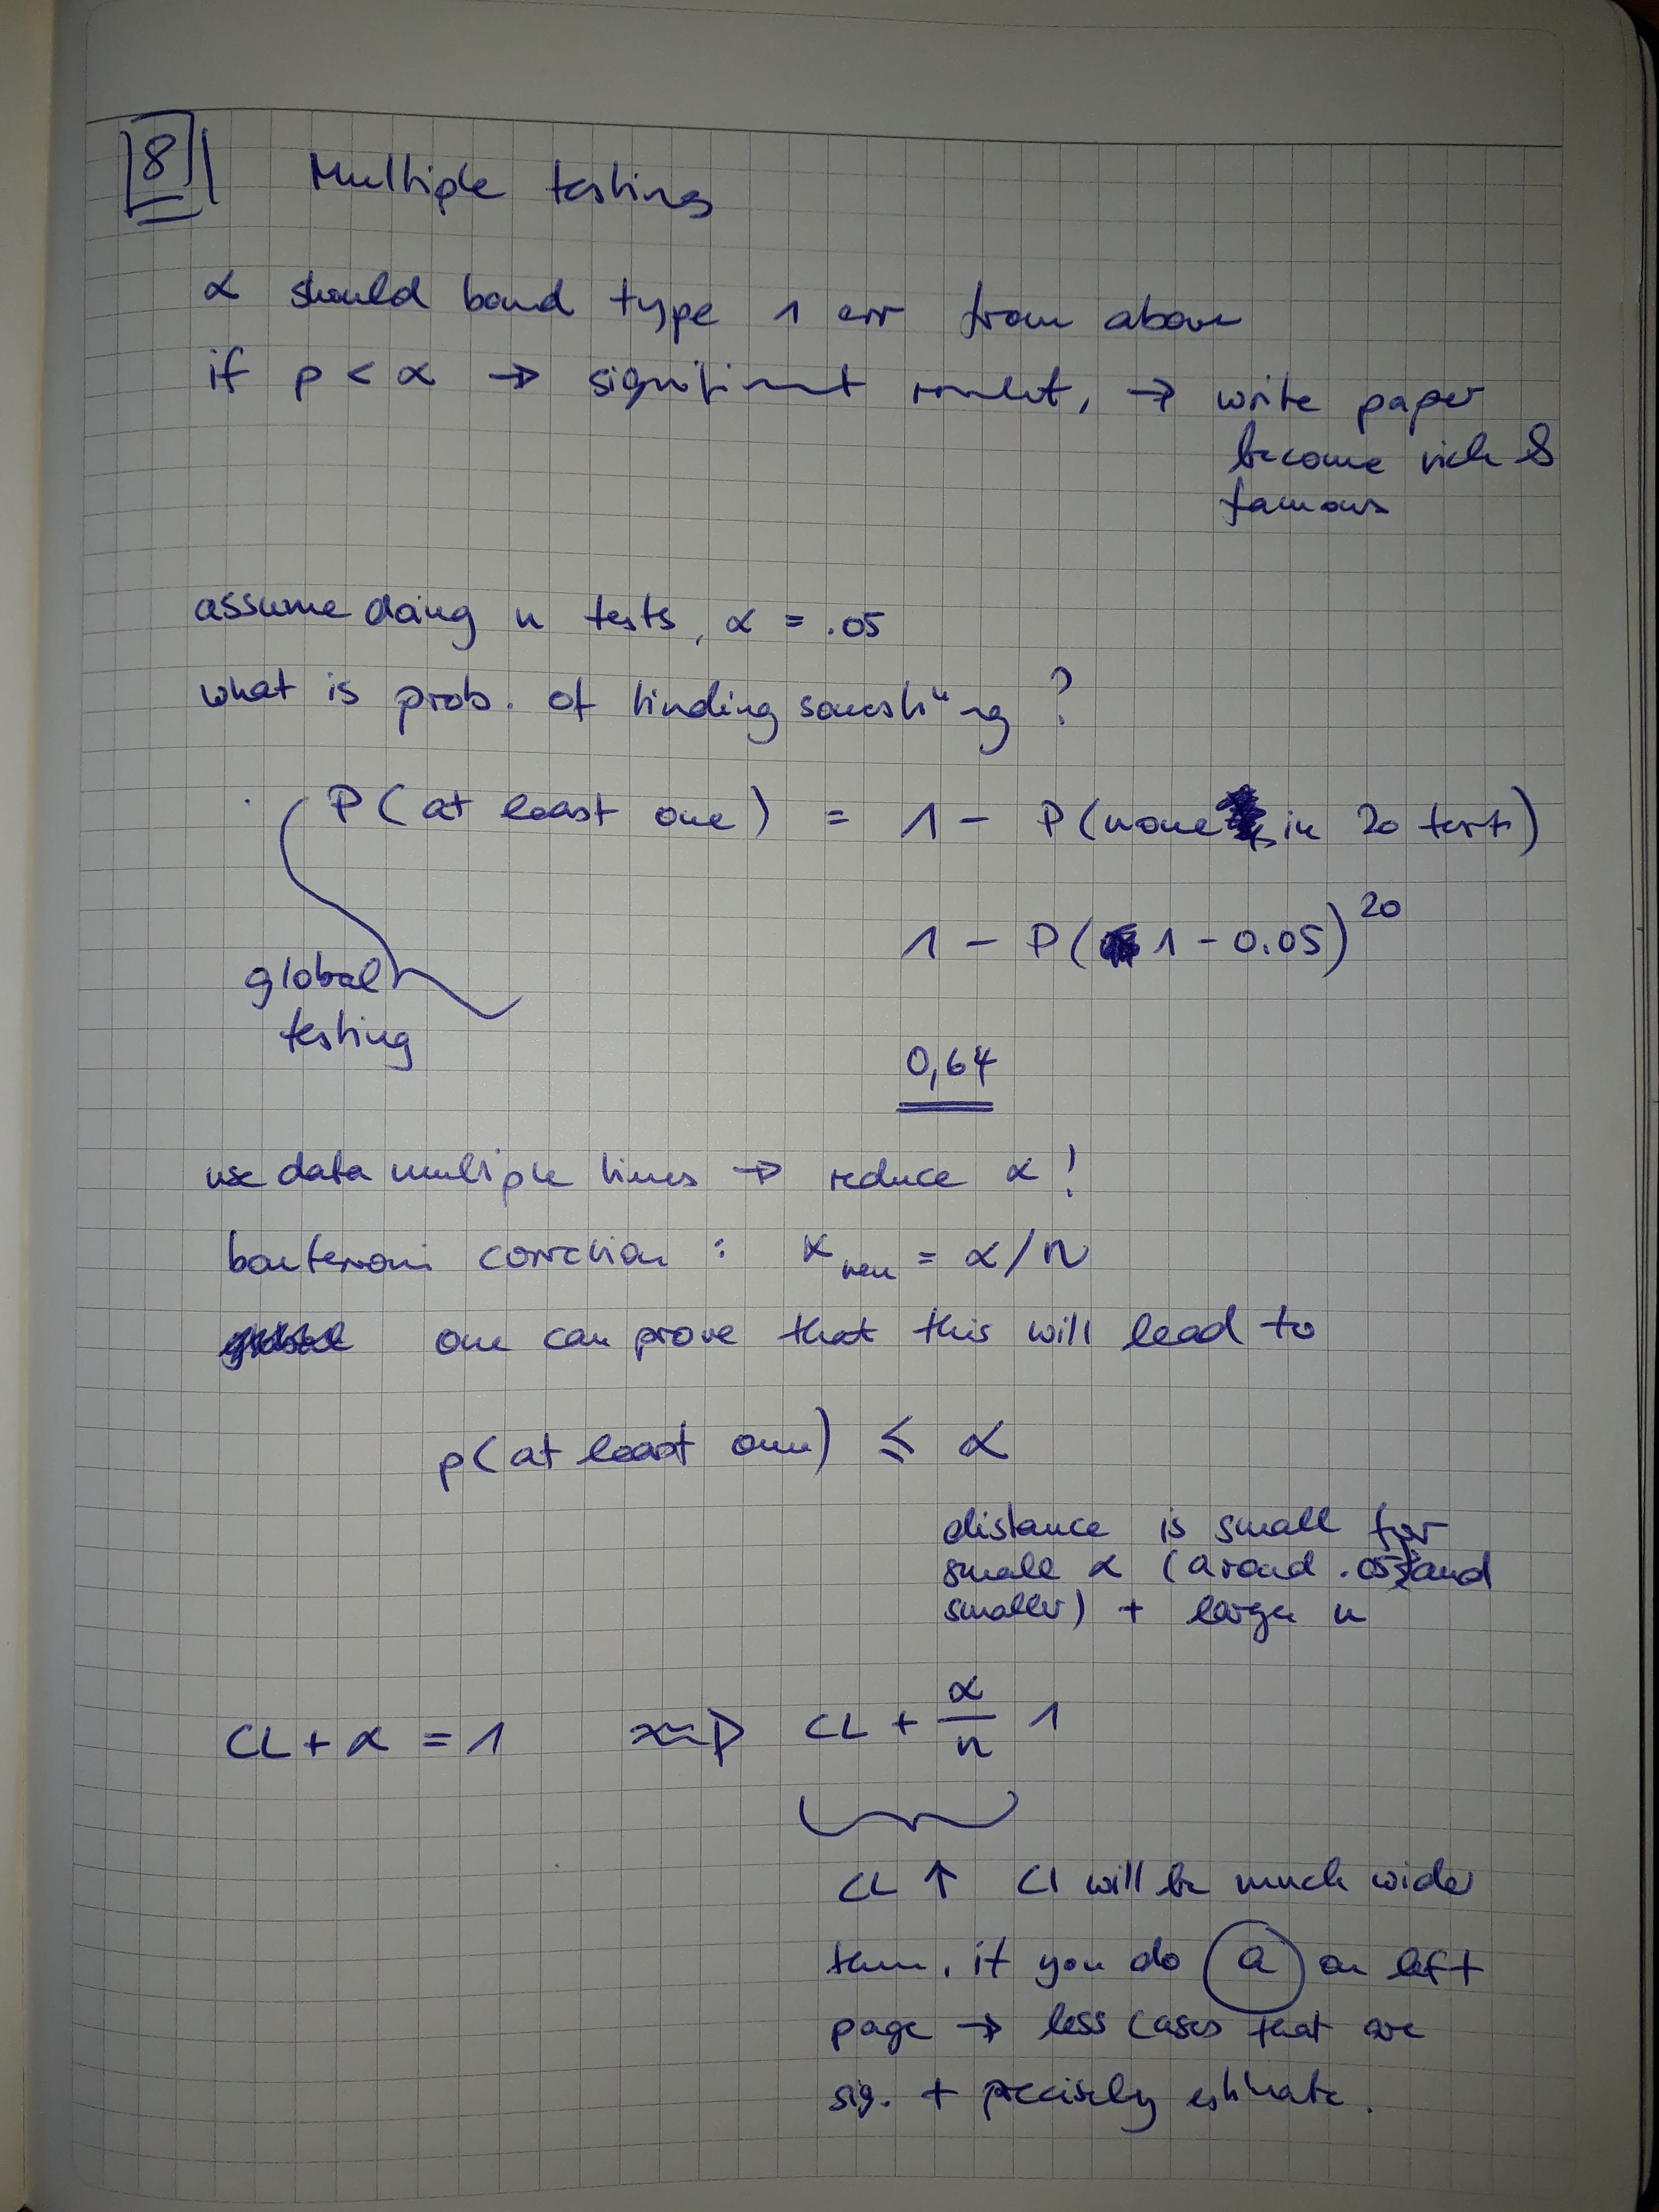 8 Multiple testing
α should bond type 1 err from above
if p < α → significant result, → write paper
become rich &
famous
assume doing n tests, α = .05
what is prob. of finding something ?
P(at least one) = 1 - P(none in 20 tests)
1 - P(1 - 0.05)^20
global
testing
0,64
use data multiple times → reduce α!
bonferroni correction : α new = α/n
one can prove that this will lead to
p(at least one) ≤ α
distance is small for
small α (around .05 and
smaller) + large n
CL + α = 1 ⇒ CL + α/n 1
CL ↑ CI will be much wider
then, if you do (a) on left
page → less cases that are
sig. + precisely estimate.